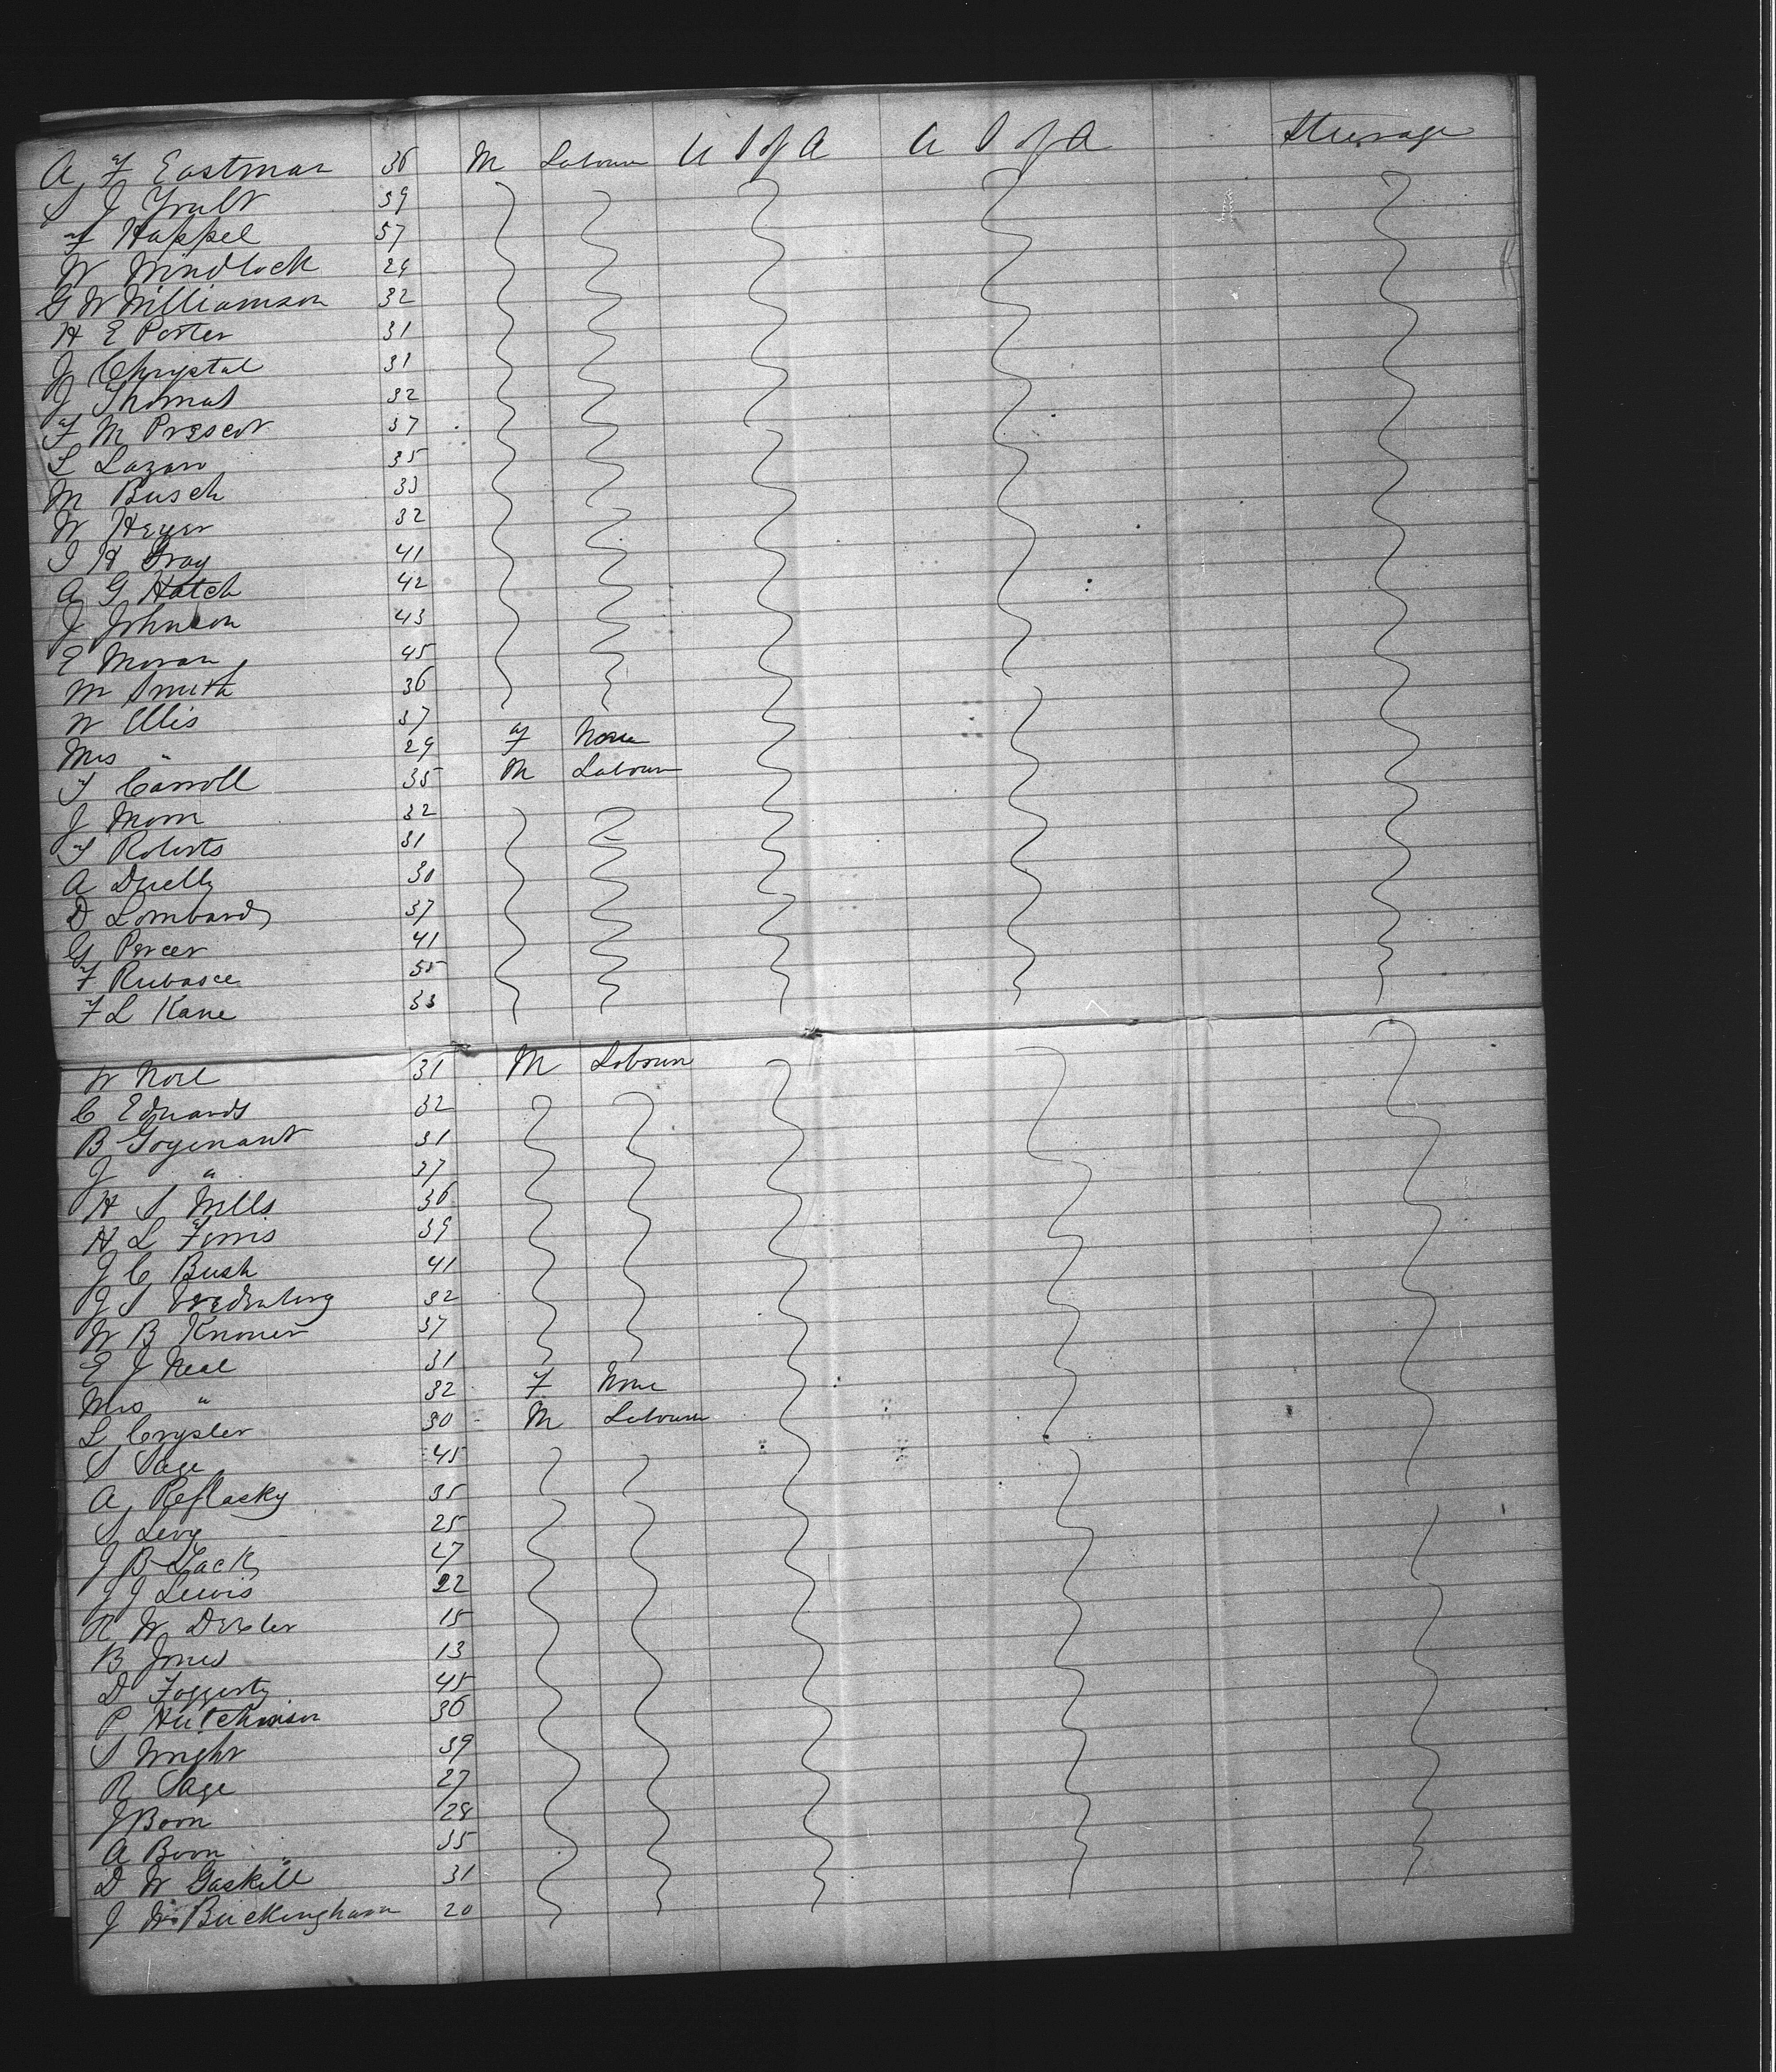 A F Eastman 36 M Labourer U S of A U S of A Steerage
S J Grult 39
F Happel 57
W Windlock 29
G W Williamson 32
H E Porter 31
J Chrystal 31
J Thomas 32
F M Prescot 37
L Lazaro 35
M Busch 33
W Heyer 32
I H Gray 41
A G Hatch 42
J Johnson 43
E Moran 45
M Smith 36
W Ellis 37
Mrs " 29 F None
F Carroll 35 M Labourer
J Morn 32
F Roberts 31
A Duelly 30
D Lombardy 37
G Percer 41
F Rubasce 55
F L Kane 33
W Noel 31 M Labourer
C Edwards 32
B Goyenant 31
J " 37
H S Mills 36
H L Ferris 39
J C Bush 41
J S Vredenburg 32
W B Knower 37
E J Neal 31
Mrs " 32 F None
L Crysler 30 M Labourer
S Sage 45
A Reflasky 35
S Levy 25
J B Lack 27
J J Lewis 22
R W Dexler 15
B Jones 13
D Foggerty 45
P Hutchinson 36
S Wright 39
R Sage 27
J Born 28
A Born 35
D W Gaskill 31
J W Buckingham 20